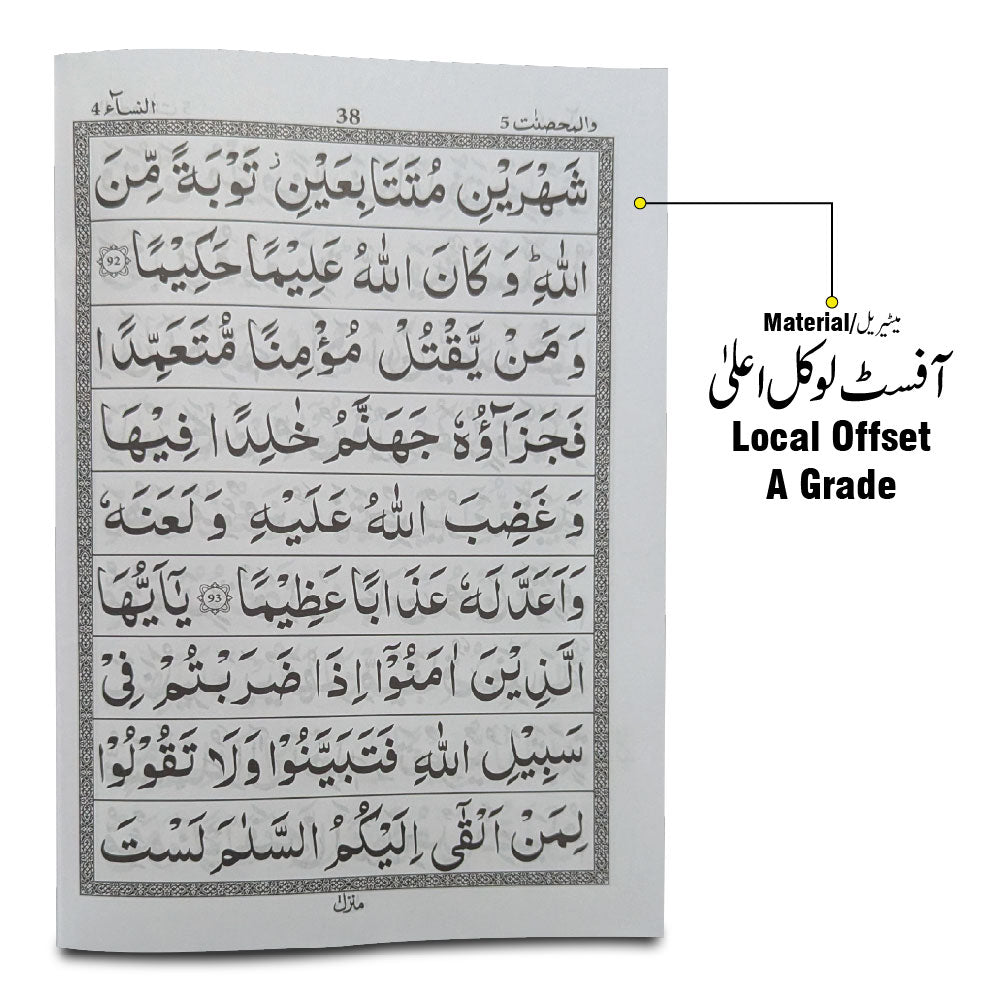 النسآء 4
38
والمحصنٰت 5
شَهْرَيْنِ مُتَتَابِعَيْنِ ز تَوْبَةً مِّنَ
اللّٰهِ ؕ وَ كَانَ اللّٰهُ عَلِيْمًا حَكِيْمًا 92
وَ مَنْ يَّقْتُلْ مُؤْمِنًا مُّتَعَمِّدًا
فَجَزَآؤُهٗ جَهَنَّمُ خٰلِدًا فِيْهَا
وَ غَضِبَ اللّٰهُ عَلَيْهِ وَ لَعَنَهٗ
وَاَعَدَّ لَهٗ عَذَابًا عَظِيْمًا 93 يٰۤاَيُّهَا
الَّذِيْنَ اٰمَنُوْۤا اِذَا ضَرَبْتُمْ فِيْ
سَبِيْلِ اللّٰهِ فَتَبَيَّنُوْا وَلَا تَقُوْلُوْا
لِمَنْ اَلْقٰۤى اِلَيْكُمُ السَّلٰمَ لَسْتَ
منزل ١
Material/میٹیریل
آفسٹ لوکل اعلیٰ
Local Offset
A Grade